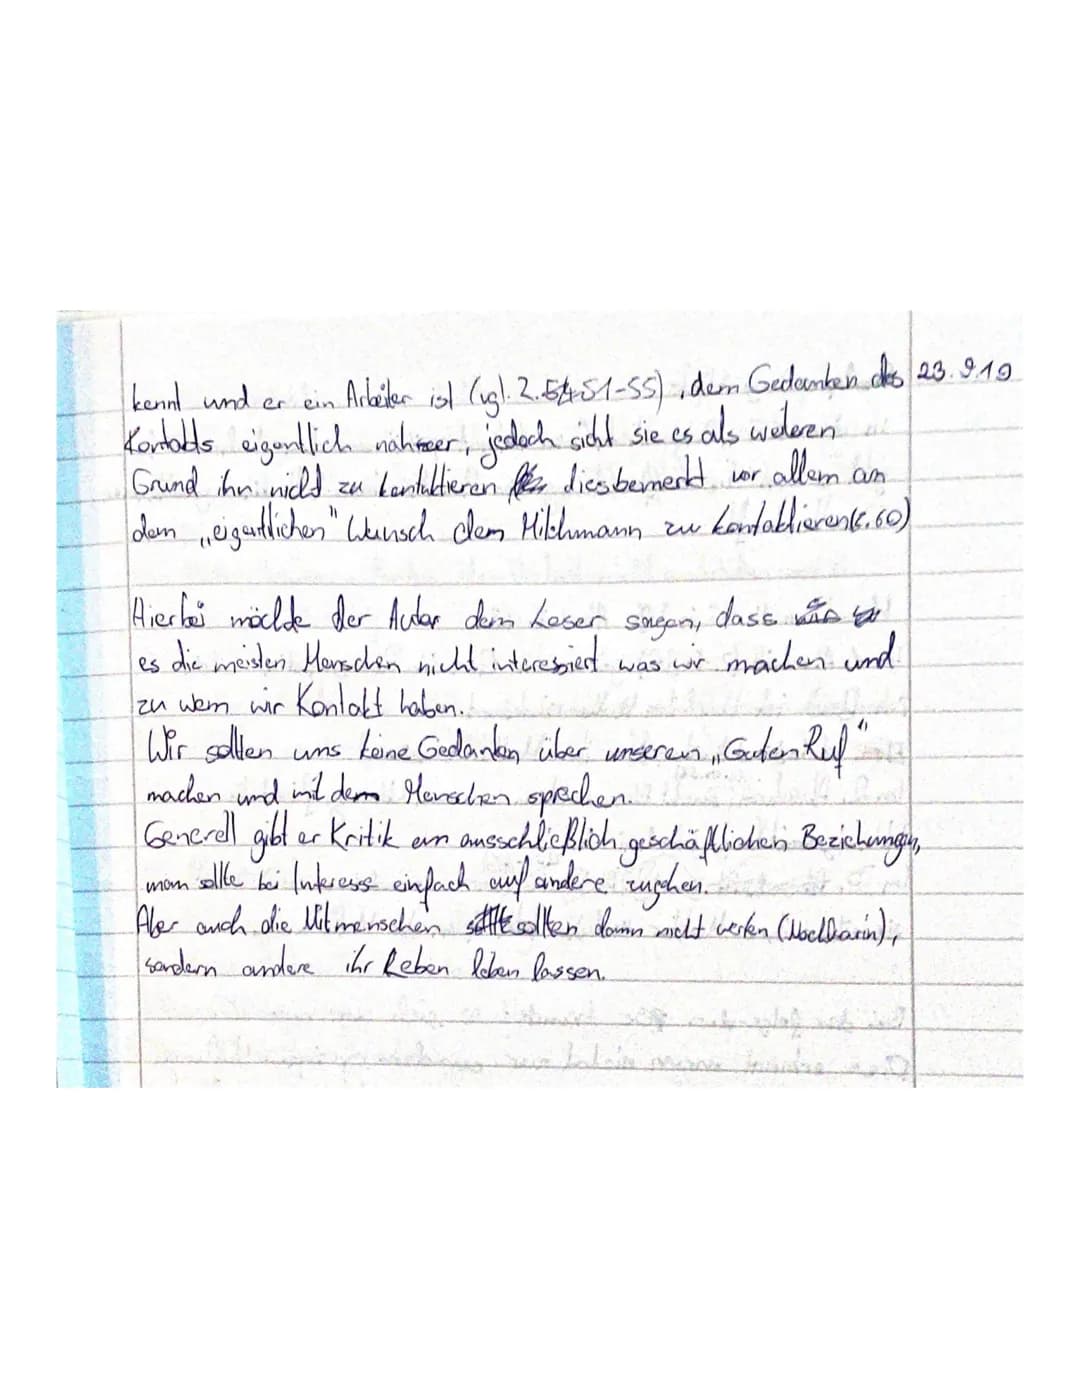 kennt und er ein Arbeiter ist (vgl. Z. 51-55), dem Gedanken des 23.9.19
Kontakts eigentlich näher, jedoch sieht sie es als weiteren
Grund ihn nicht zu kontaktieren dies bemerkt vor allem an
dem „eigentlichen" Wunsch dem Milchmann zu kontaktieren (Z. 60)
Hierbei möchte der Autor dem Leser sagen, dass
es die meisten Menschen nicht interessiert was wir machen und
zu wem wir Kontakt haben.
Wir sollten uns keine Gedanken über unseren „Guten Ruf"
machen und mit dem Menschen sprechen.
Generell gibt er Kritik an ausschließlich geschäftlichen Beziehungen,
man sollte bei Interesse einfach auf andere zugehen.
Aber auch die Mitmenschen sollten dann nicht werten (Nachbarin),
sondern andere ihr Leben leben lassen.